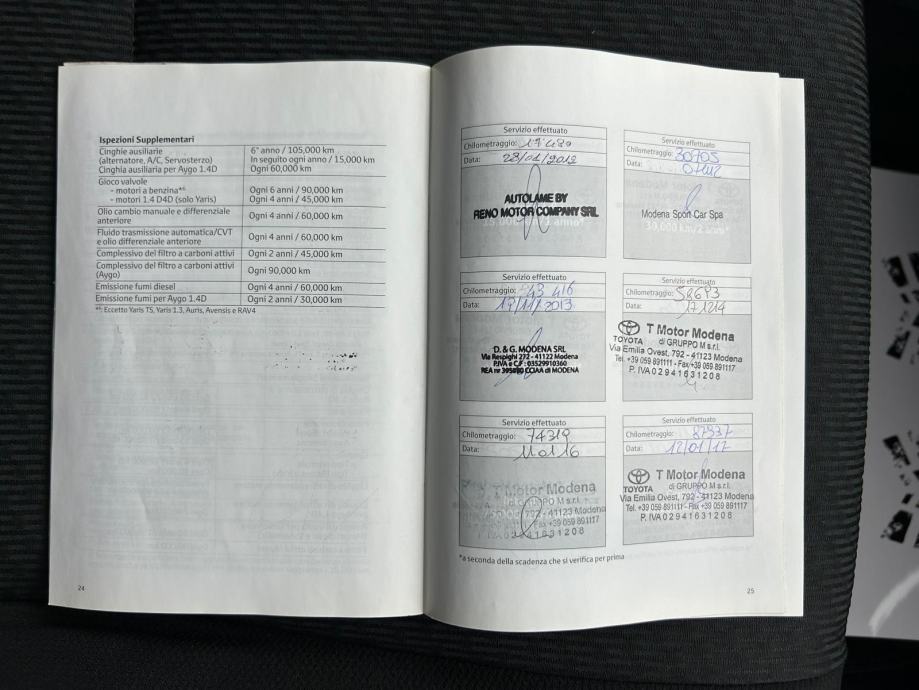 Ispezioni Supplementari
Cinghie ausiliarie
(alternatore, A/C, Servosterzo)
Cinghia ausiliaria per Aygo 1.4D
6° anno / 105,000 km
In seguito ogni anno / 15,000 km
Ogni 60,000 km
Gioco valvole
- motori a benzina*⁶
- motori 1.4 D4D (solo Yaris)
Ogni 6 anni / 90,000 km
Ogni 4 anni / 45,000 km
Olio cambio manuale e differenziale
anteriore
Ogni 4 anni / 60,000 km
Fluido trasmissione automatica/CVT
e olio differenziale anteriore
Ogni 4 anni / 60,000 km
Complessivo del filtro a carboni attivi
Ogni 2 anni / 45,000 km
Complessivo del filtro a carboni attivi
(Aygo)
Ogni 90,000 km
Emissione fumi diesel
Ogni 4 anni / 60,000 km
Emissione fumi per Aygo 1.4D
Ogni 2 anni / 30,000 km
*⁶: Eccetto Yaris TS, Yaris 1.3, Auris, Avensis e RAV4
24
Servizio effettuato
Chilometraggio: 17480
Data: 23/01/2012
AUTOLAME BY
RENO MOTOR COMPANY SRL
Servizio effettuato
Chilometraggio: 30705
Data:
Modena Sport Car Spa
30,000 km/2 anni*
Servizio effettuato
Chilometraggio: 43 416
Data: 19/11/2013
D. & G. MODENA SRL
Via Respighi 272 - 41122 Modena
P.IVA e C.F.: 03529910360
CCIAA di MODENA
Servizio effettuato
Chilometraggio: 58693
Data: 171214
T Motor Modena
di GRUPPO M s.r.l.
TOYOTA
Via Emilia Ovest, 792 - 41123 Modena
Tel. +39 059 891111 - Fax +39 059 891117
P. IVA 02941631208
Servizio effettuato
Chilometraggio: 74319
Data: 110116
T Motor Modena
GRUPPO M s.r.l.
792 - 41123 Modena
Fax +39 059 891117
02941631208
Servizio effettuato
Chilometraggio: 87937
Data: 12/01/17
T Motor Modena
di GRUPPO M s.r.l.
TOYOTA
Via Emilia Ovest, 792 - 41123 Modena
Tel. +39 059 891111 - Fax +39 059 891117
P. IVA 02941631208
*a seconda della scadenza che si verifica per prima
25